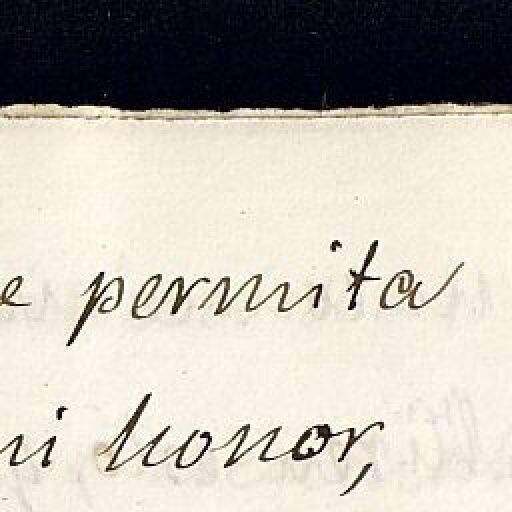 e permita
mi honor,